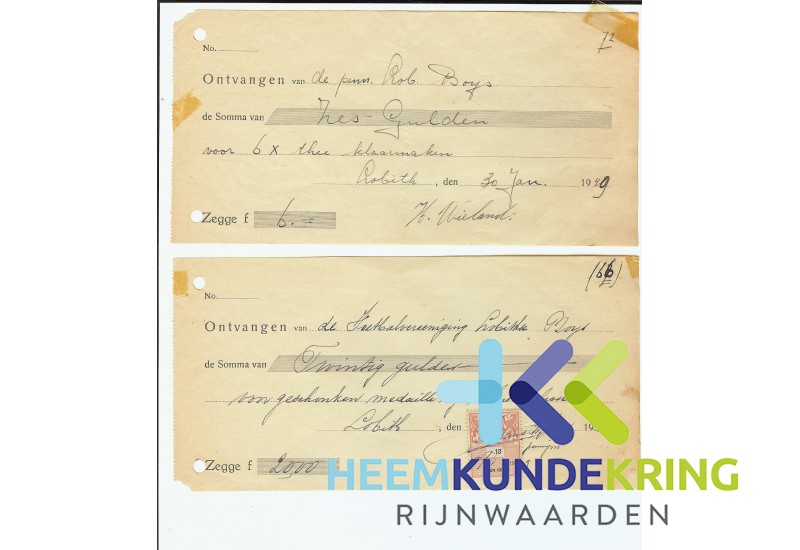 72
No.
Ontvangen van de penn. Lob. Boys
de Somma van Zes Gulden
voor 6 x thee klaarmaken
Lobith, den 30 Jan. 1949
Zegge f 6.= H. Wieland.
(66)
No.
Ontvangen van de Voetbalvereeniging Lobithse Boys
de Somma van Twintig gulden
voor geschonken medaille
Lobith, den 19
Zegge f 2000
HEEMKUNDEKRING
RIJNWAARDEN